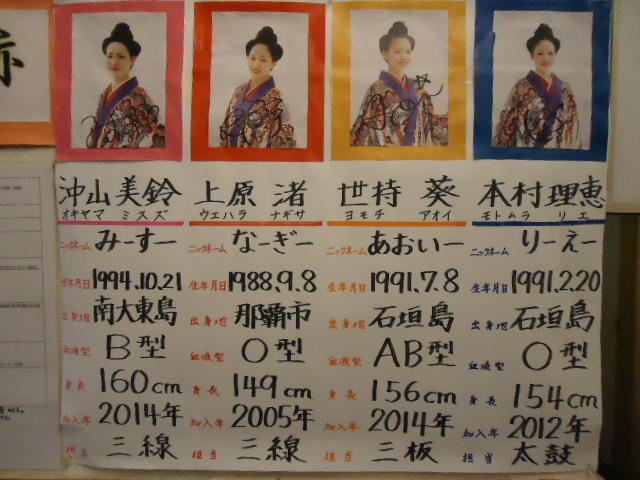 沖山美鈴 上原 渚 世持 葵 本村理恵
オキヤマ ミスズ ウエハラ ナギサ ヨモチ アオイ モトムラ リエ
ニックネーム みーすー ニックネーム なーぎー ニックネーム あおいー ニックネーム りーえー
生年月日 1994.10.21 生年月日 1988.9.8 生年月日 1991.7.8 生年月日 1991.2.20
出身地 南大東島 出身地 那覇市 出身地 石垣島 出身地 石垣島
血液型 B型 血液型 O型 血液型 AB型 血液型 O型
身長 160cm 身長 149cm 身長 156cm 身長 154cm
加入年 2014年 加入年 2005年 加入年 2014年 加入年 2012年
担当 三線 担当 三線 担当 三板 担当 太鼓